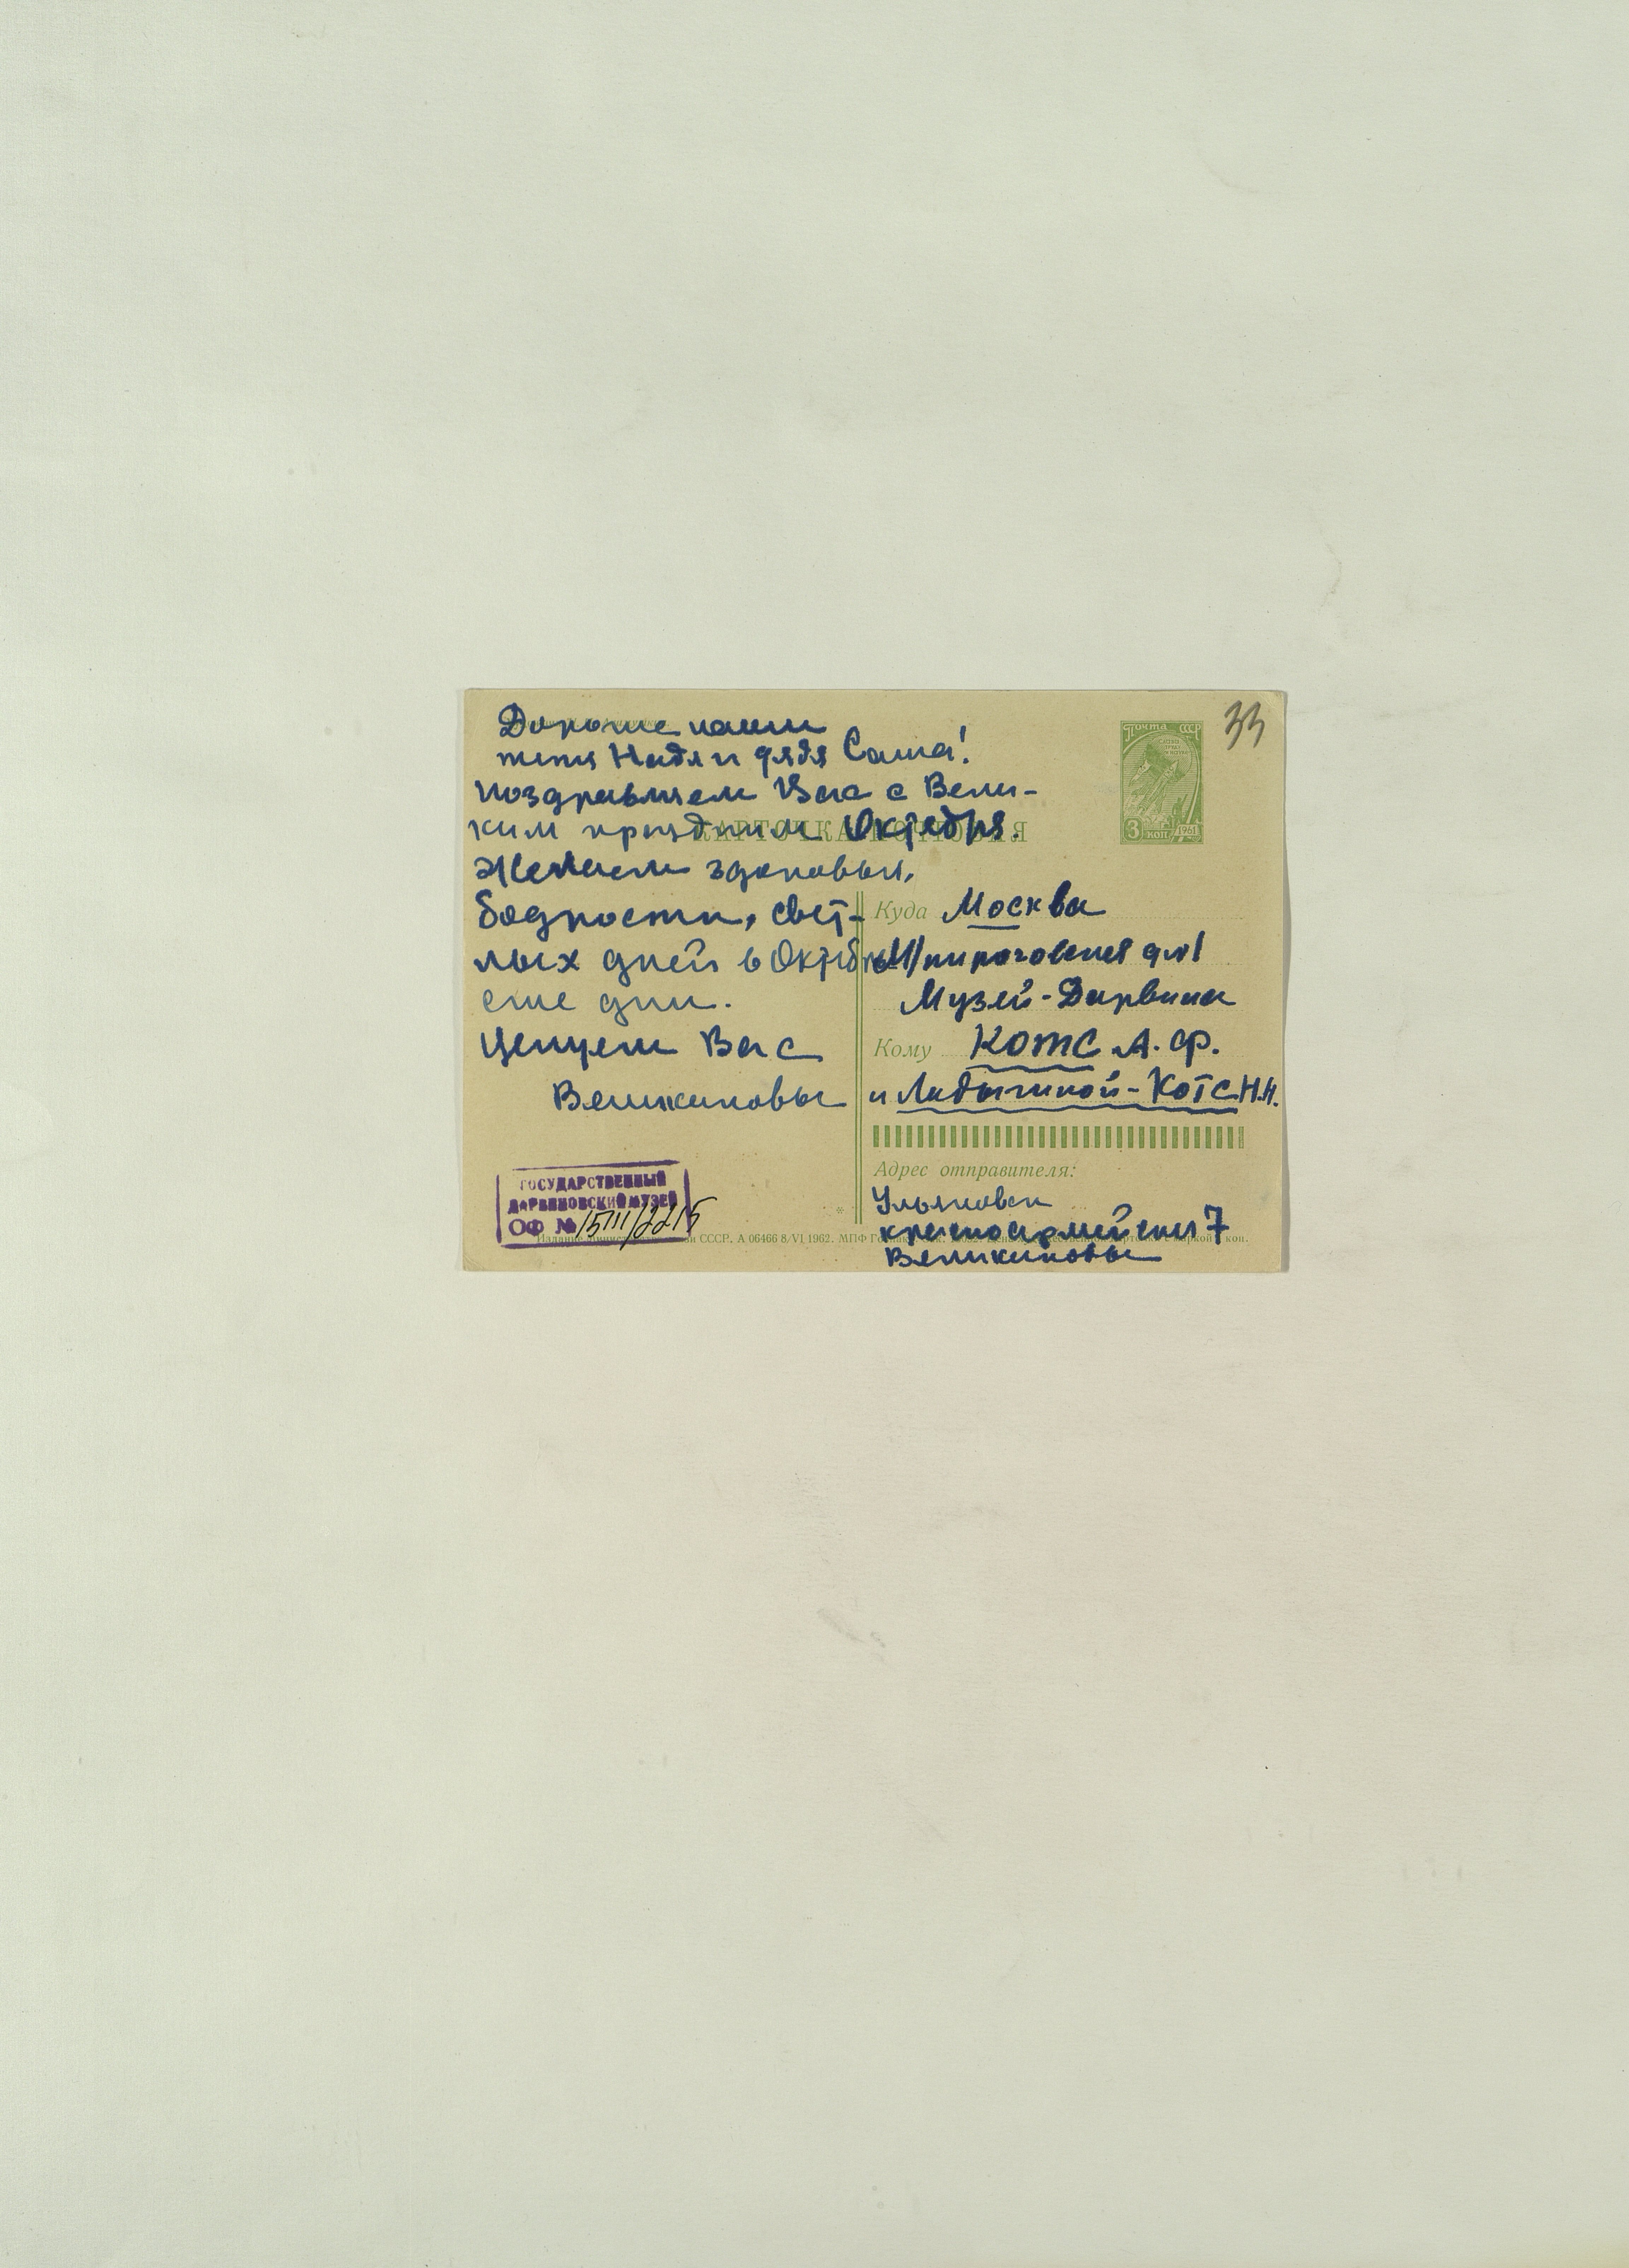 Дорогие наши
тетя Надя и дядя Саша!
Поздравляем Вас с Вели-
ким праздником Октября.
КАРТОЧКА ПОЧТОВАЯ
Желаем здоровья,
бодрости, свет-
лых дней в Октябрь
ские дни.
Целуем Вас
Великановы
ГОСУДАРСТВЕННЫЙ
ДАРВИНОВСКИЙ МУЗЕЙ
ОФ № 15111/2215
33
Почта СССР
3 коп 1961
Куда Москва
М/пироговская д №1
Музей-Дарвина
Кому Котс А. Ф.
и Ладыгиной-Котс Н.Н.
Адрес отправителя:
Ульяновск
красноармейская 7
Великановы
СССР. А 06466 8/VI 1962. МПФ